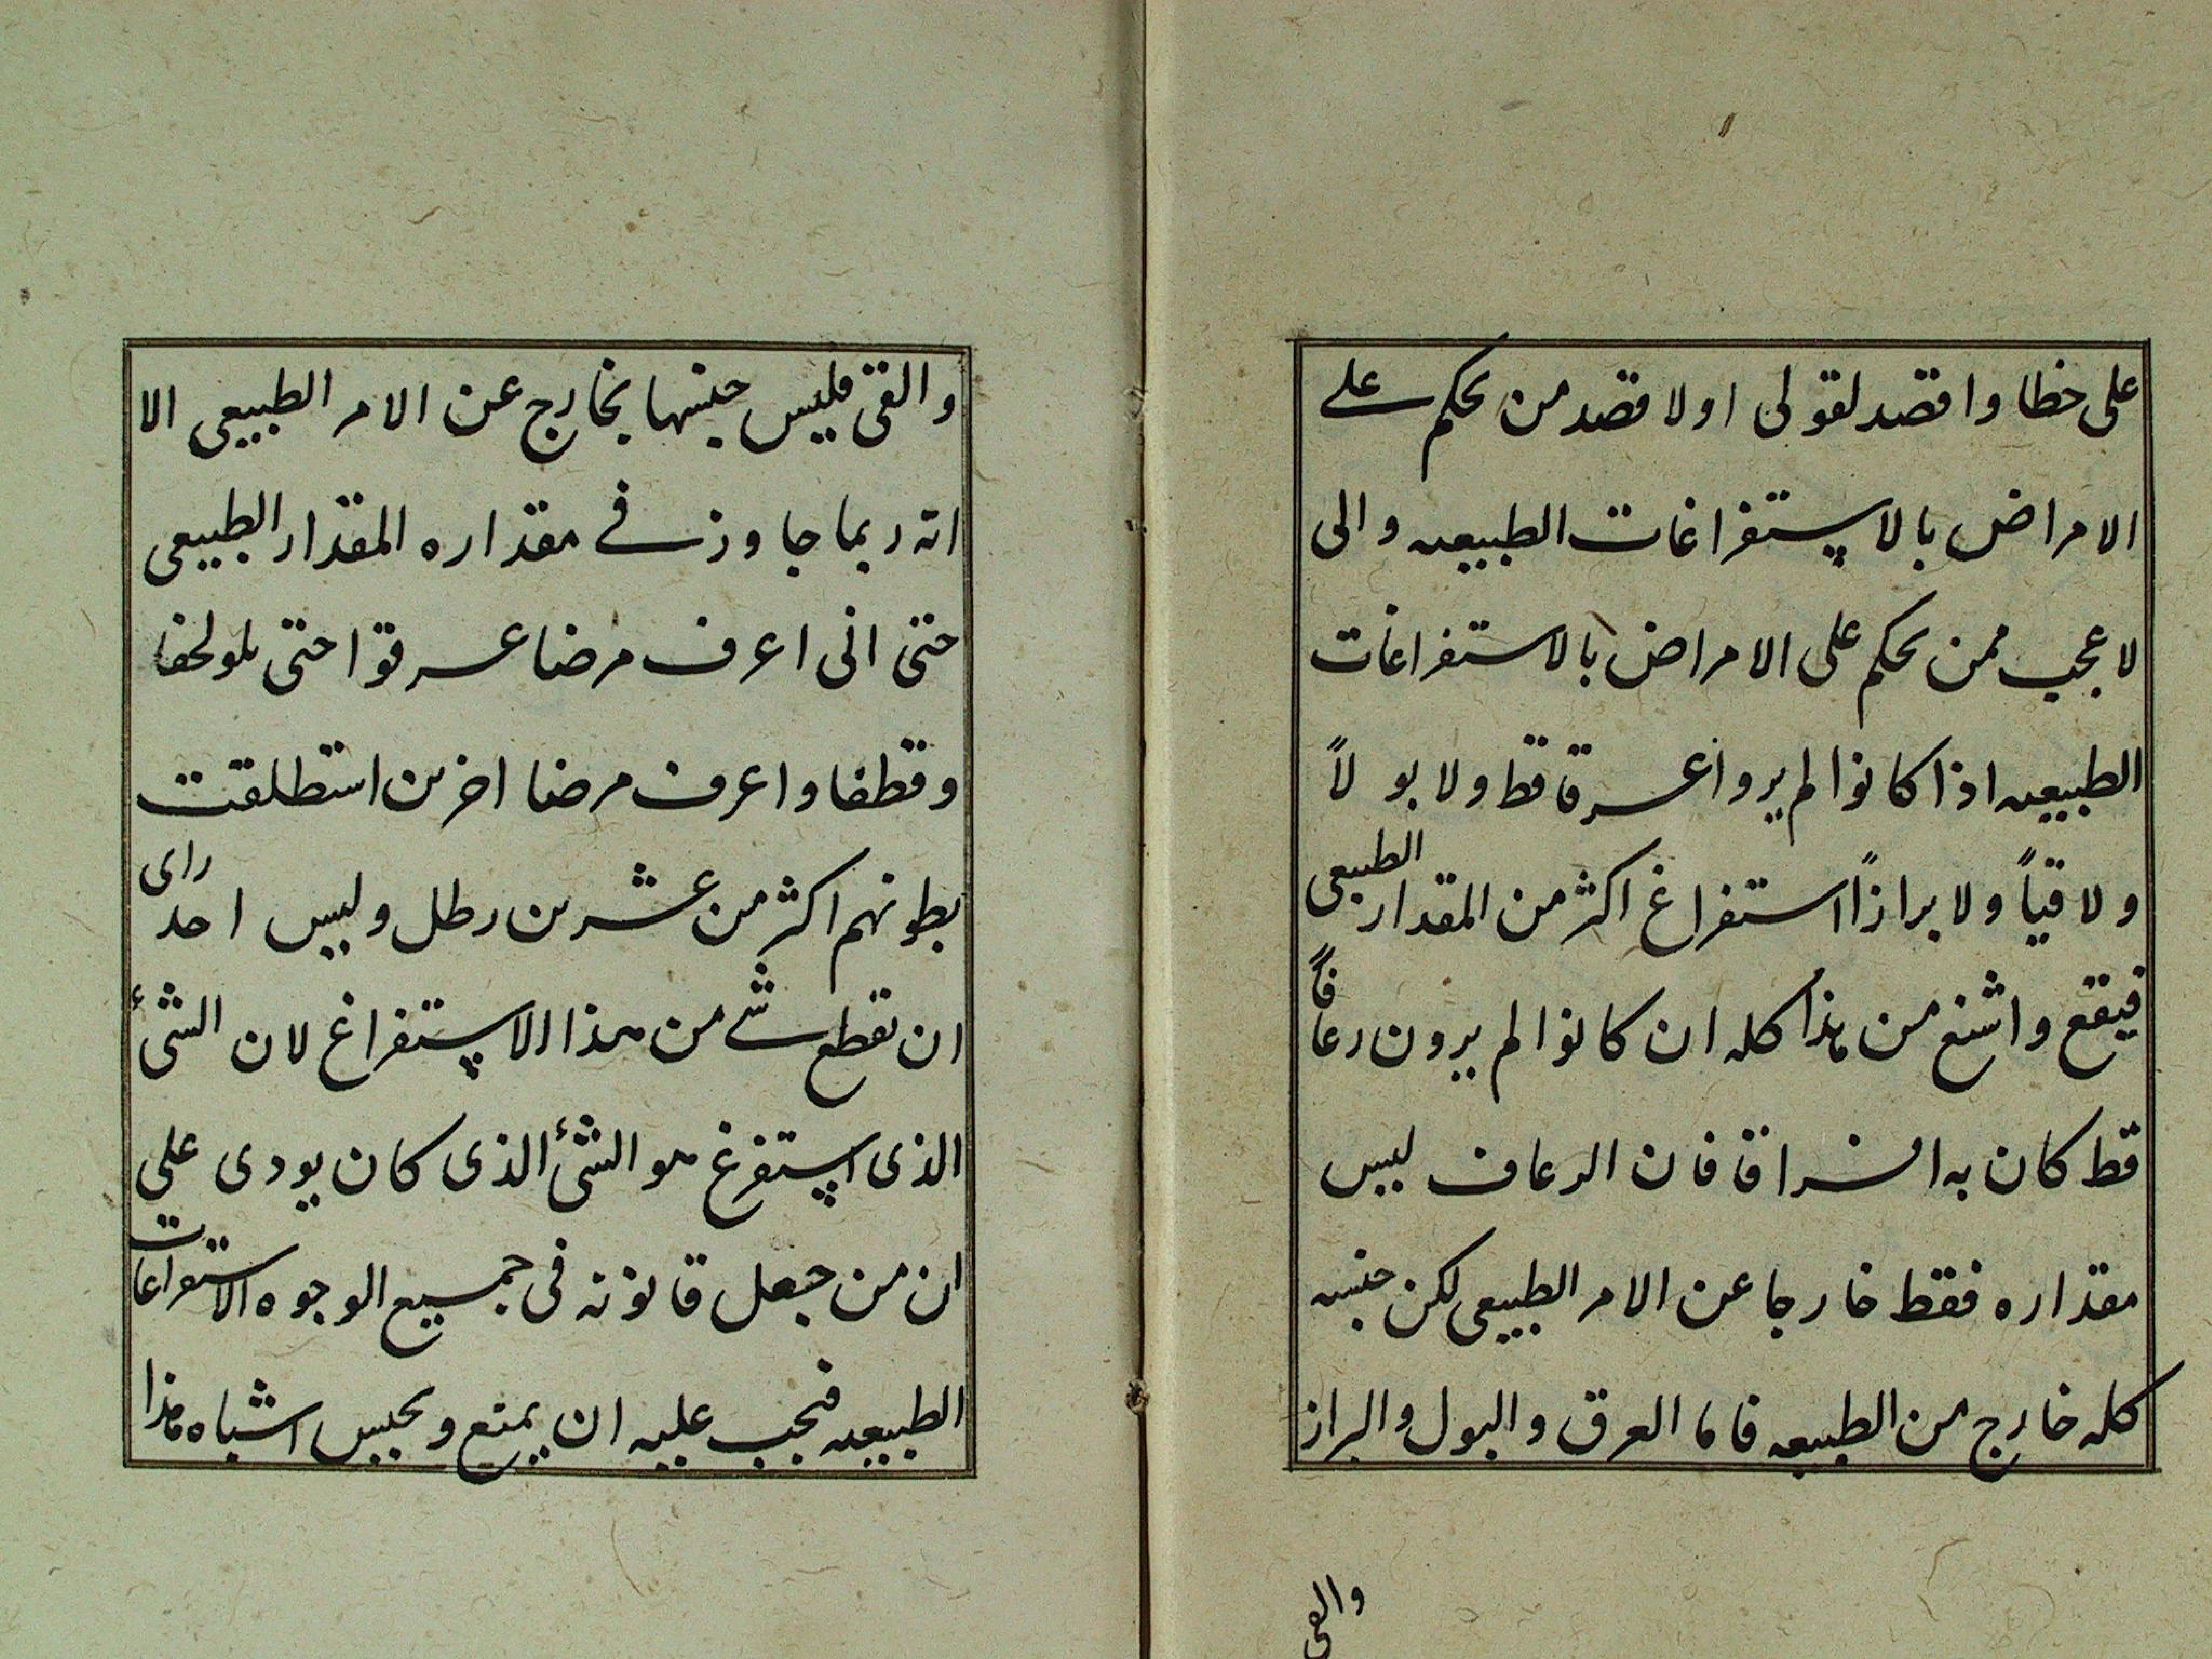 على خطا واقصد لقولى اولا قصد من يحكم على
الامراض بالاستفراغات الطبيعيه والى
لاعجب ممن يحكم على الامراض بالاستفراغات
الطبيعيه اذا كانوا لم يروا عرقا قط ولا بولاً
ولا قياً ولا برازاً استفراغ اكثر من المقدار الطبيعى
فيقع واشنع من هذا كله ان كانوا لم يرون رعافاً
قط كان به فان الرعاف ليس
مقداره فقط خارجا عن الامر الطبيعى لكن جنسه
كله خارج من الطبيعه فاما العرق والبول والبراز
والقى
والقى فليس جنسها بخارج عن الامر الطبيعى الا
انه ربما جاوز فى مقداره المقدار الطبيعى
حتى انى اعرف مرضا عرقوا حتى بلو لحفا
وقطفا واعرف مرضا اخرين استطلقت
بطونهم اكثر من عشرين رطل وليس احد راى
ان نقطع شى من هذا الاستفراغ لان الشئ
الذى استفرغ هو الشئ الذى كان يودى على
ان من جعل قانونه فى جميع الوجوه الاستفراغات
الطبيعيه فيجب عليه ان يمنع ويحبس اشباه هذا